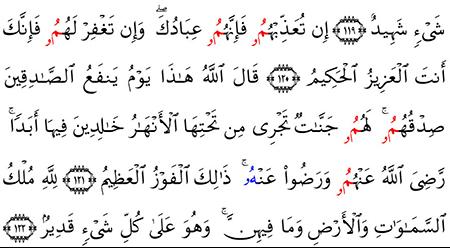 شَيْءٍ شَهِيدٌ ﴿١١٩﴾ إِن تُعَذِّبْهُمُۥ فَإِنَّهُمُۥ عِبَادُكَۖ وَإِن تَغْفِرْ لَهُمُۥ فَإِنَّكَ
أَنتَ ٱلْعَزِيزُ ٱلْحَكِيمُ ﴿١٢٠﴾ قَالَ ٱللَّهُ هَٰذَا يَوْمُ يَنفَعُ ٱلصَّٰدِقِينَ
صِدْقُهُمُۥۚ لَهُمُۥ جَنَّٰتٌ تَجْرِي مِن تَحْتِهَا ٱلْأَنْهَٰرُ خَٰلِدِينَ فِيهَا أَبَدًاۚ
رَّضِيَ ٱللَّهُ عَنْهُمُۥ وَرَضُوا۟ عَنْهُۥۚ ذَٰلِكَ ٱلْفَوْزُ ٱلْعَظِيمُ ﴿١٢١﴾ لِلَّهِ مُلْكُ
ٱلسَّمَٰوَٰتِ وَٱلْأَرْضِ وَمَا فِيهِنَّۚ وَهُوَ عَلَىٰ كُلِّ شَيْءٍ قَدِيرٌۢ ﴿١٢٢﴾